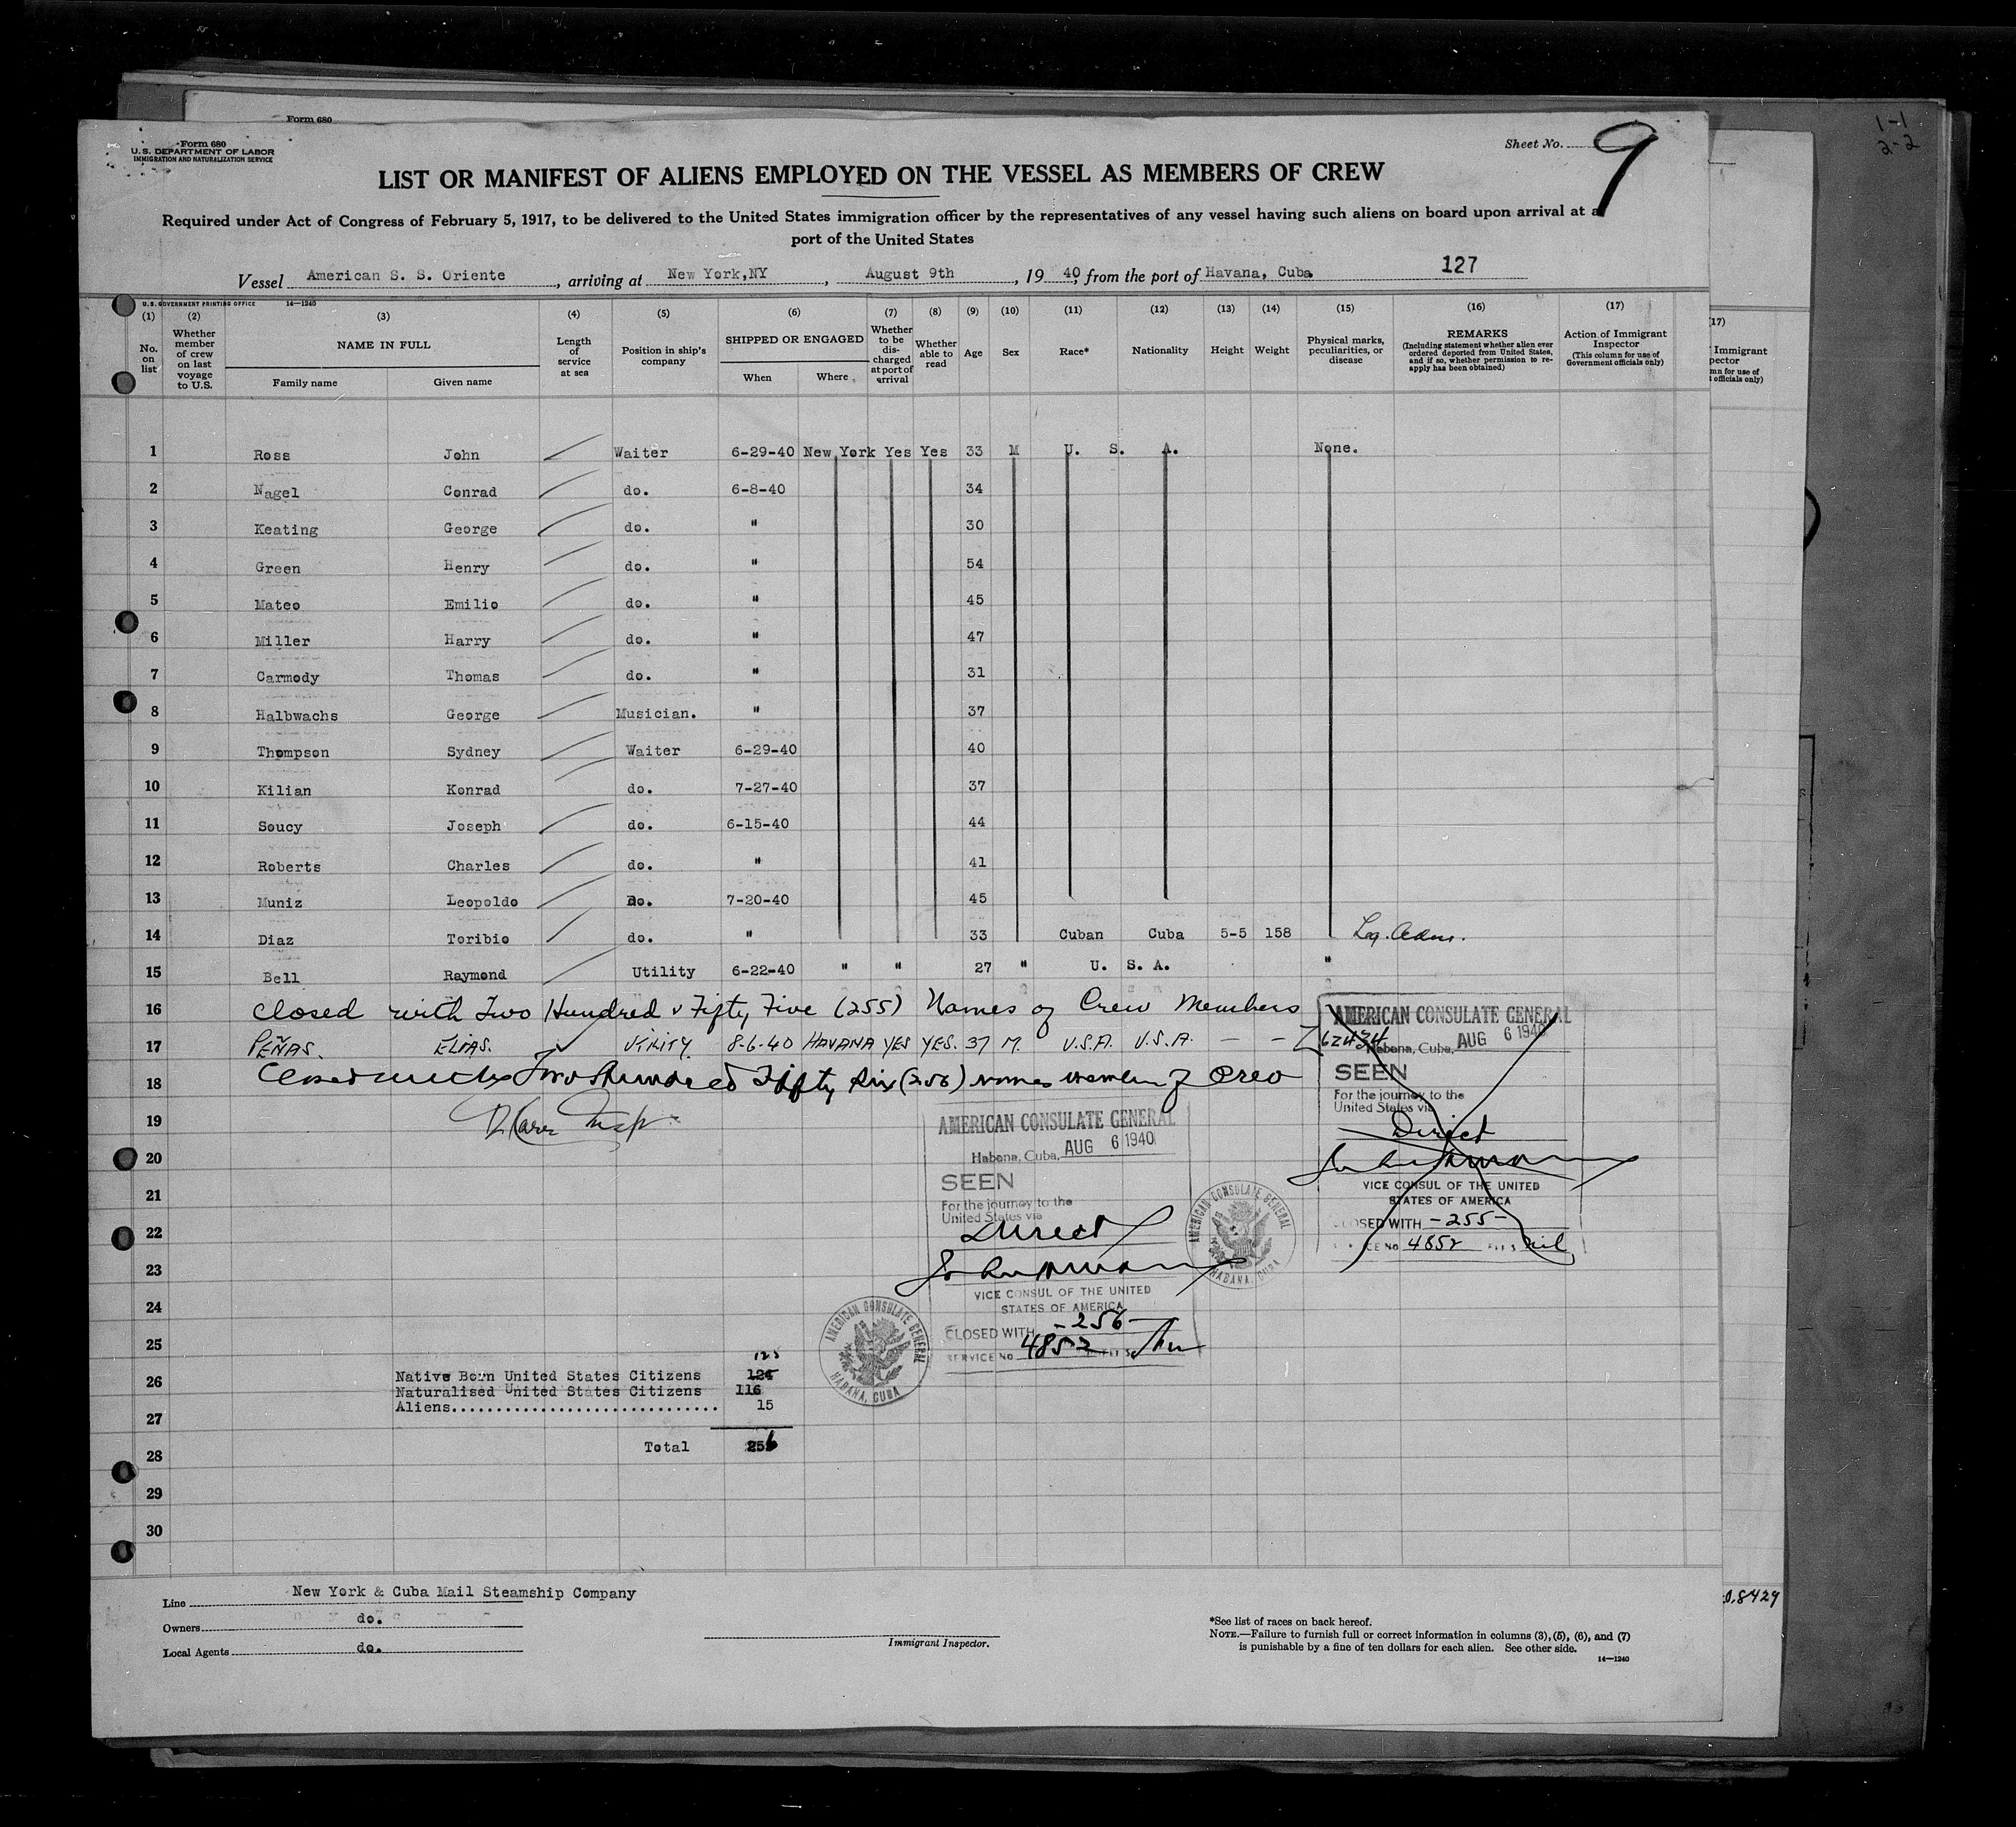 Form 680
Form 680
U.S. DEPARTMENT OF LABOR
IMMIGRATION AND NATURALIZATION SERVICE
Sheet No. 9
1-1
2-2
LIST OR MANIFEST OF ALIENS EMPLOYED ON THE VESSEL AS MEMBERS OF CREW
Required under Act of Congress of February 5, 1917, to be delivered to the United States immigration officer by the representatives of any vessel having such aliens on board upon arrival at a
port of the United States
Vessel American S. S. Oriente, arriving at New York,NY, August 9th, 19 40, from the port of Havana, Cuba 127
U.S. GOVERNMENT PRINTING OFFICE 14—1240
(1) (2) (3) (4) (5) (6) (7) (8) (9) (10) (11) (12) (13) (14) (15) (16) (17)
No. on list
Whether member of crew on last voyage to U.S.
NAME IN FULL
Family name Given name
Length of service at sea
Position in ship's company
SHIPPED OR ENGAGED
When Where
Whether to be discharged at port of arrival
Whether able to read
Age
Sex
Race*
Nationality
Height
Weight
Physical marks, peculiarities, or disease
REMARKS
(Including statement whether alien ever ordered deported from United States, and if so, whether permission to re-apply has been obtained)
Action of Immigrant Inspector
(This column for use of Government officials only)
(17)
Immigrant
pector
mn for use of
officials only)
1 Ross John Waiter 6-29-40 New York Yes Yes 33 M U. S. A. None.
2 Nagel Conrad do. 6-8-40 34
3 Keating George do. " 30
4 Green Henry do. " 54
5 Mateo Emilio do. " 45
6 Miller Harry do. " 47
7 Carmody Thomas do. " 31
8 Halbwachs George Musician. " 37
9 Thompson Sydney Waiter 6-29-40 40
10 Kilian Konrad do. 7-27-40 37
11 Soucy Joseph do. 6-15-40 44
12 Roberts Charles do. " 41
13 Muniz Leopoldo Do. 7-20-40 45
14 Diaz Toribio do. " 33 Cuban Cuba 5-5 158 Leg. Adm.
15 Bell Raymond Utility 6-22-40 " " 27 " U. S. A. "
16 Closed with Two Hundred & Fifty Five (255) Names of Crew Members
17 PEÑAS. ELIAS. UTILITY 8-6-40 HAVANA YES YES. 37 M. U.S.A. U.S.A. — — Z62434
18 Closed with Two Hundred Fifty Six (256) names members of Crew
19
20
21
22
23
24
25
26
27
28
29
30
AMERICAN CONSULATE GENERAL
Habana, Cuba, AUG 6 1940
SEEN
For the journey to the
United States via
Direct
VICE CONSUL OF THE UNITED
STATES OF AMERICA
CLOSED WITH -255-
SERVICE No 4852 nil
AMERICAN CONSULATE GENERAL
Habana, Cuba, AUG 6 1940
SEEN
For the journey to the
United States via
Direct
VICE CONSUL OF THE UNITED
STATES OF AMERICA
CLOSED WITH -256-
SERVICE No 4852
AMERICAN CONSULATE GENERAL HABANA, CUBA
AMERICAN CONSULATE GENERAL HABANA, CUBA
125
Native Born United States Citizens 124
Naturalised United States Citizens 116
Aliens.............................. 15
Total 256
Line New York & Cuba Mail Steamship Company
Owners do.
Local Agents do.
Immigrant Inspector.
*See list of races on back hereof.
NOTE.—Failure to furnish full or correct information in columns (3), (5), (6), and (7)
is punishable by a fine of ten dollars for each alien. See other side.
14—1240
0.8429